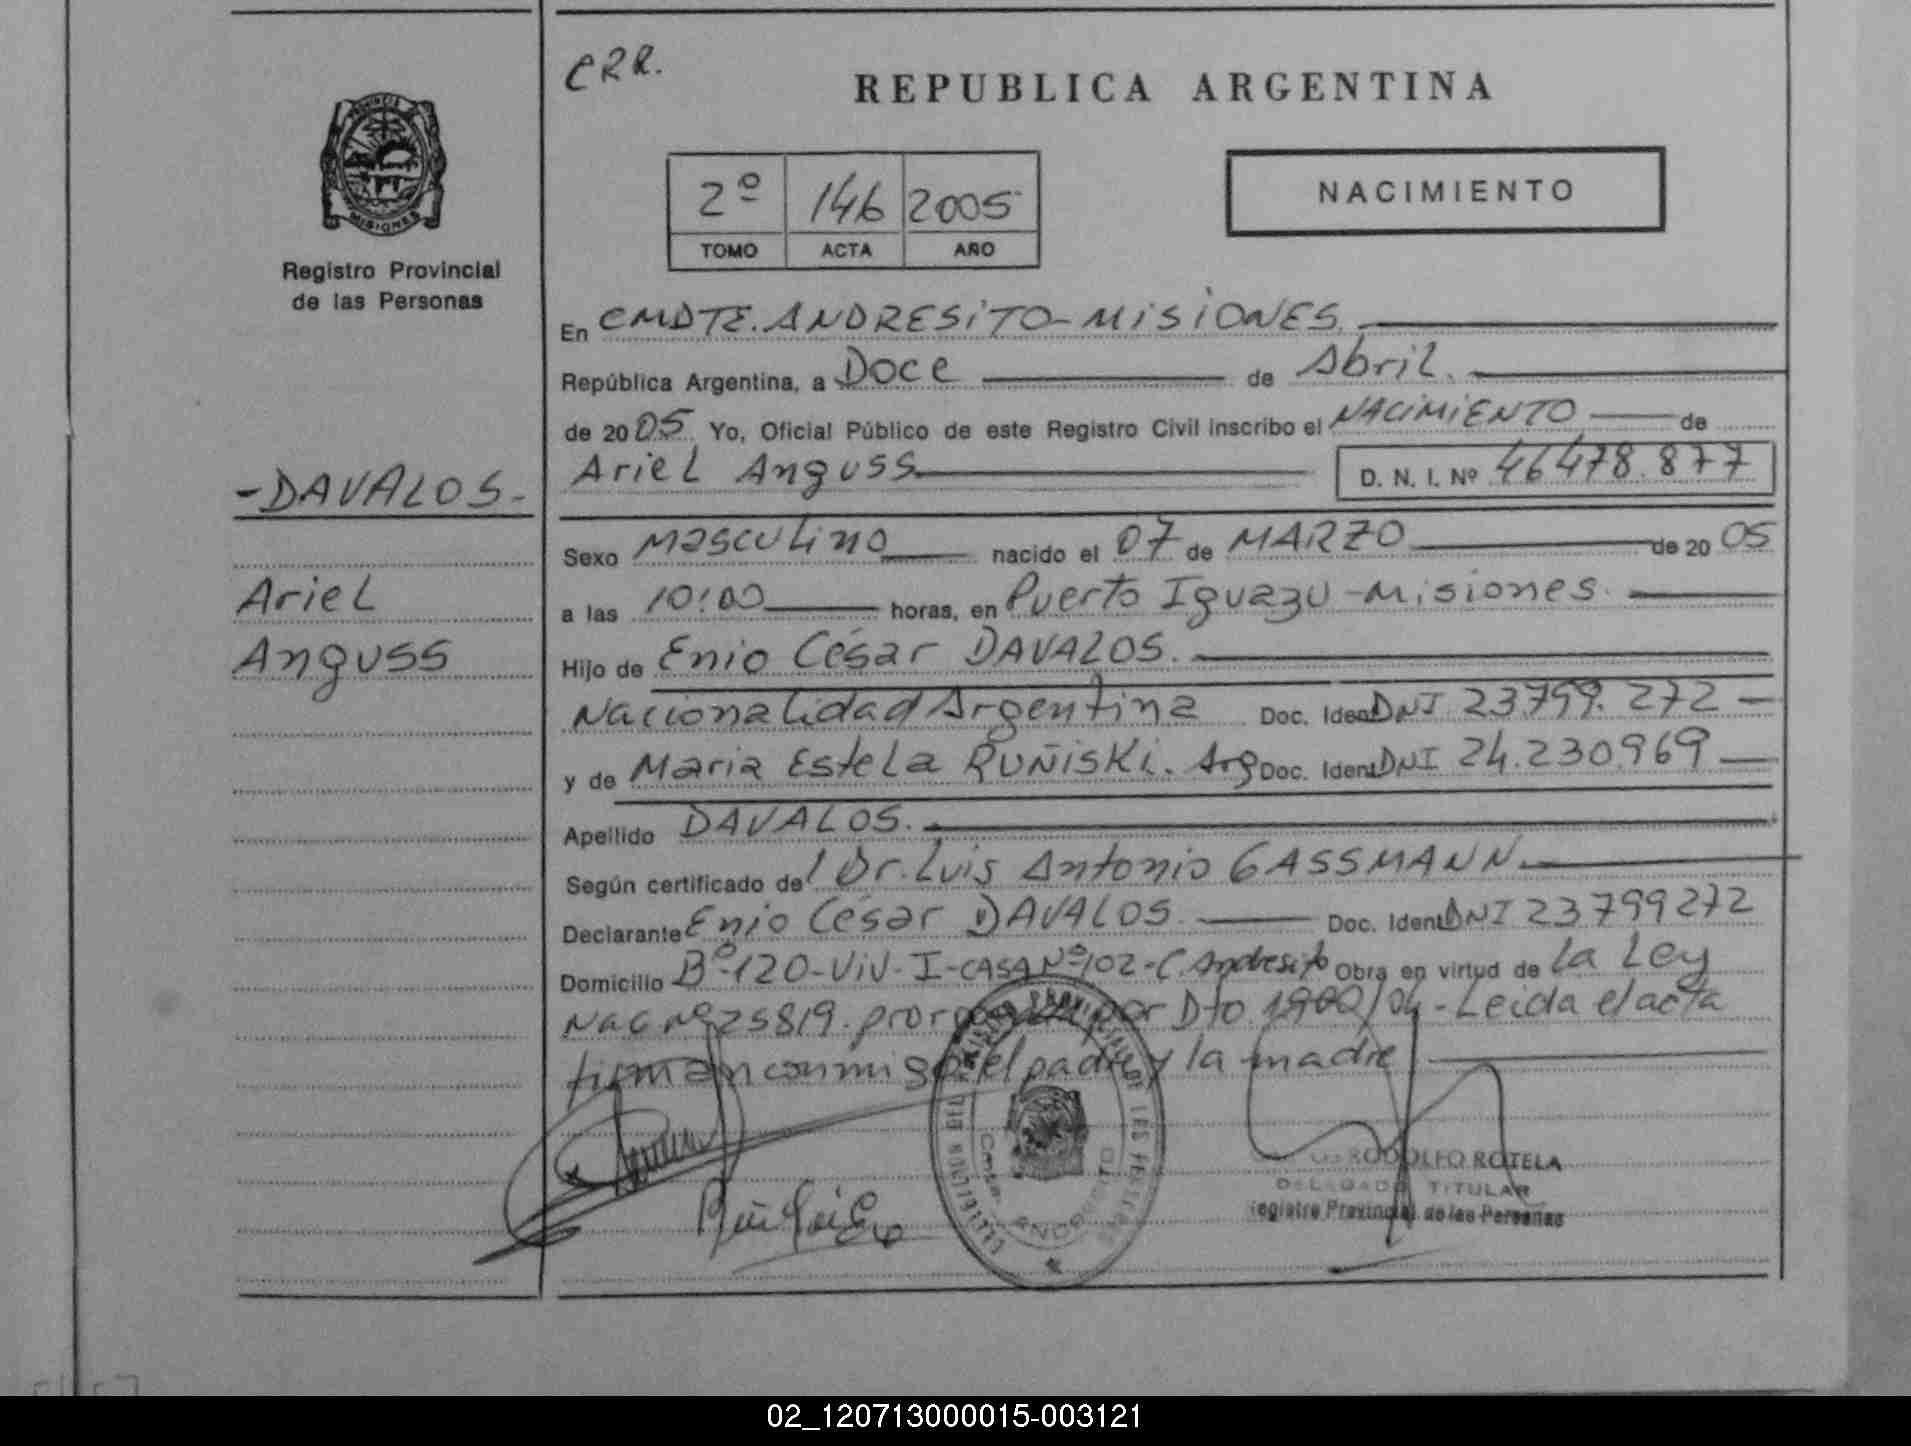 CRR.
REPUBLICA ARGENTINA
PROVINCIA DE
MISIONES
Registro Provincial
de las Personas
2º 146 2005
TOMO ACTA AÑO
NACIMIENTO
En CMDTE. ANDRESITO-MISIONES.
República Argentina, a Doce de Abril.
de 2005 Yo, Oficial Público de este Registro Civil inscribo el NACIMIENTO de
Ariel Anguss D. N. I. Nº 46478.877
-DAVALOS-
Ariel
Anguss
Sexo Masculino nacido el 07 de MARZO de 20 05
a las 10:00 horas, en Puerto Iguazu-Misiones.
Hijo de Enio César DAVALOS.
Nacionalidad Argentina Doc. Ident DNI 23.799.272
y de Maria Estela RUÑISKI. Arg Doc. Ident DNI 24.230.969
Apellido DAVALOS.
Según certificado del Dr. Luis Antonio GASSMANN
Declarante Enio César DAVALOS. Doc. Ident DNI 23799272
Domicilio Bº-120-VIV-I-CASA Nº102-C. Andresito Obra en virtud de la Ley
Nac Nº25819. por Dto 1900/04-Leida el acta
firman conmigo el padre y la madre
RODOLFO ROTELA
DELEGADO TITULAR
Registro Provincial de las Personas
ANDRESITO
02_120713000015-003121